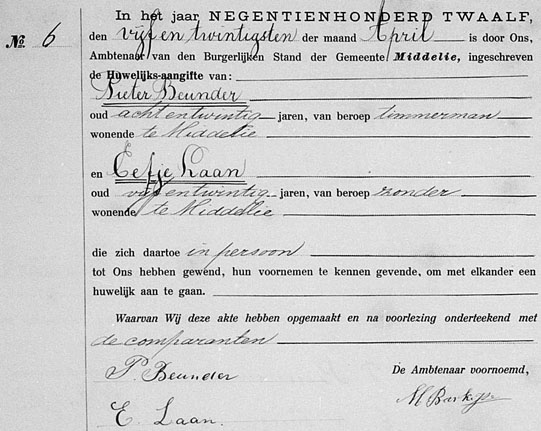 In het jaar NEGENTIENHONDERD TWAALF,
No. 6 den vijf en twintigsten der maand April is door Ons,
Ambtenaar van den Burgerlijken Stand der Gemeente Middelie, ingeschreven
de Huwelijks-aangifte van:
Pieter Beunder
oud acht en twintig jaren, van beroep timmerman
wonende te Middelie
en Eefje Laan
oud vijf en twintig jaren, van beroep zonder
wonende te Middelie
die zich daartoe in persoon
tot Ons hebben gewend, hun voornemen te kennen gevende, om met elkander een
huwelijk aan te gaan.
Waarvan Wij deze akte hebben opgemaakt en na voorlezing onderteekend met
de comparanten
P. Beunder
De Ambtenaar voornoemd,
E. Laan.